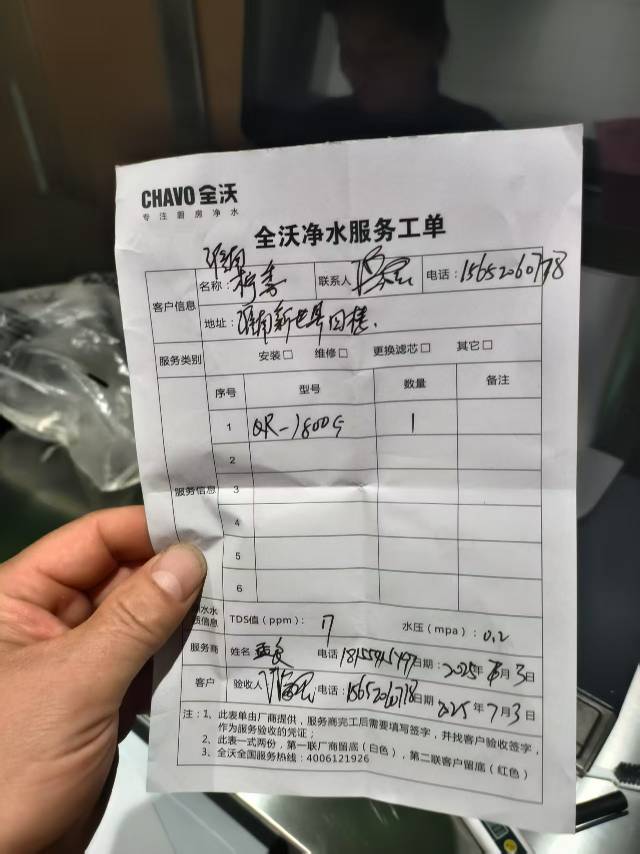 CHAVO 全沃
专注厨房净水
全沃净水服务工单
客户信息
名称：
联系人
电话：15652060778
地址：淮南新世界四楼.
服务类别 安装□ 维修□ 更换滤芯□ 其它□
服务信息
序号 型号 数量 备注
1 QR-1800G 1
2
3
4
5
6
TDS值（ppm）： 17 水压（mpa）：0.2
服务商 姓名 电话 日期：2025年 月3日
客户 验收人 电话： 日期 2025年7月3日
注：1、此表单由厂商提供，服务商完工后需要填写签字，并找客户验收签字，
作为服务验收的凭证；
2、此表一式两份，第一联厂商留底（白色），第二联客户留底（红色）
3、全沃全国服务热线：4006121926